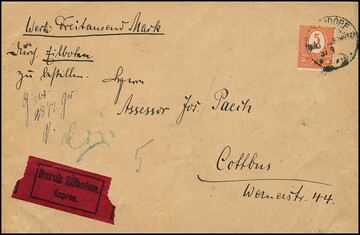 Wert: Dreitausend Mark
5
Durch Eilboten
zu bestellen.
Herrn
Assessor Jos. Paech
5
Cottbus
Wernerstr. 44.
Durch Eilboten.
Exprès.